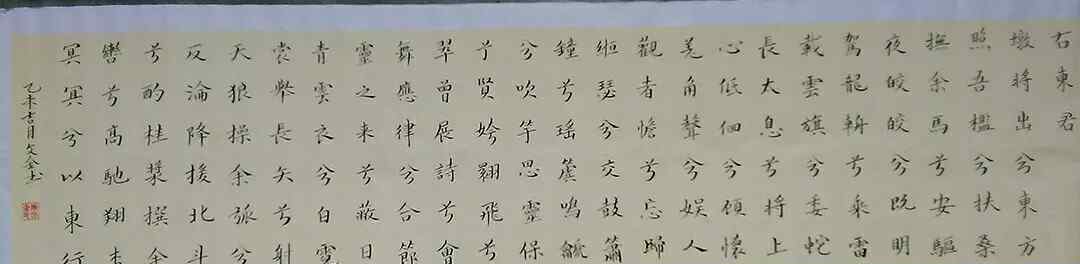 右東君
墩將出兮東方
照吾檻兮扶桑
撫余馬兮安驅
夜皎皎兮既明
駕龍輈兮乘雷
載雲旗兮委蛇
長太息兮將上
心低佪兮顧懷
羌角聲兮娛人
觀者憺兮忘歸
緪瑟兮交鼓簫
鐘兮瑤簴鳴
兮吹竽思靈保
兮賢姱翾飛兮
翠曾展詩兮會
舞應律兮合節
靈之來兮蔽日
青雲衣兮白霓
裳舉長矢兮射
天狼操余弧兮
反淪降援北斗
兮酌桂漿撰余
轡兮高馳翔杳
冥冥兮以東行
乙未吉月文金书